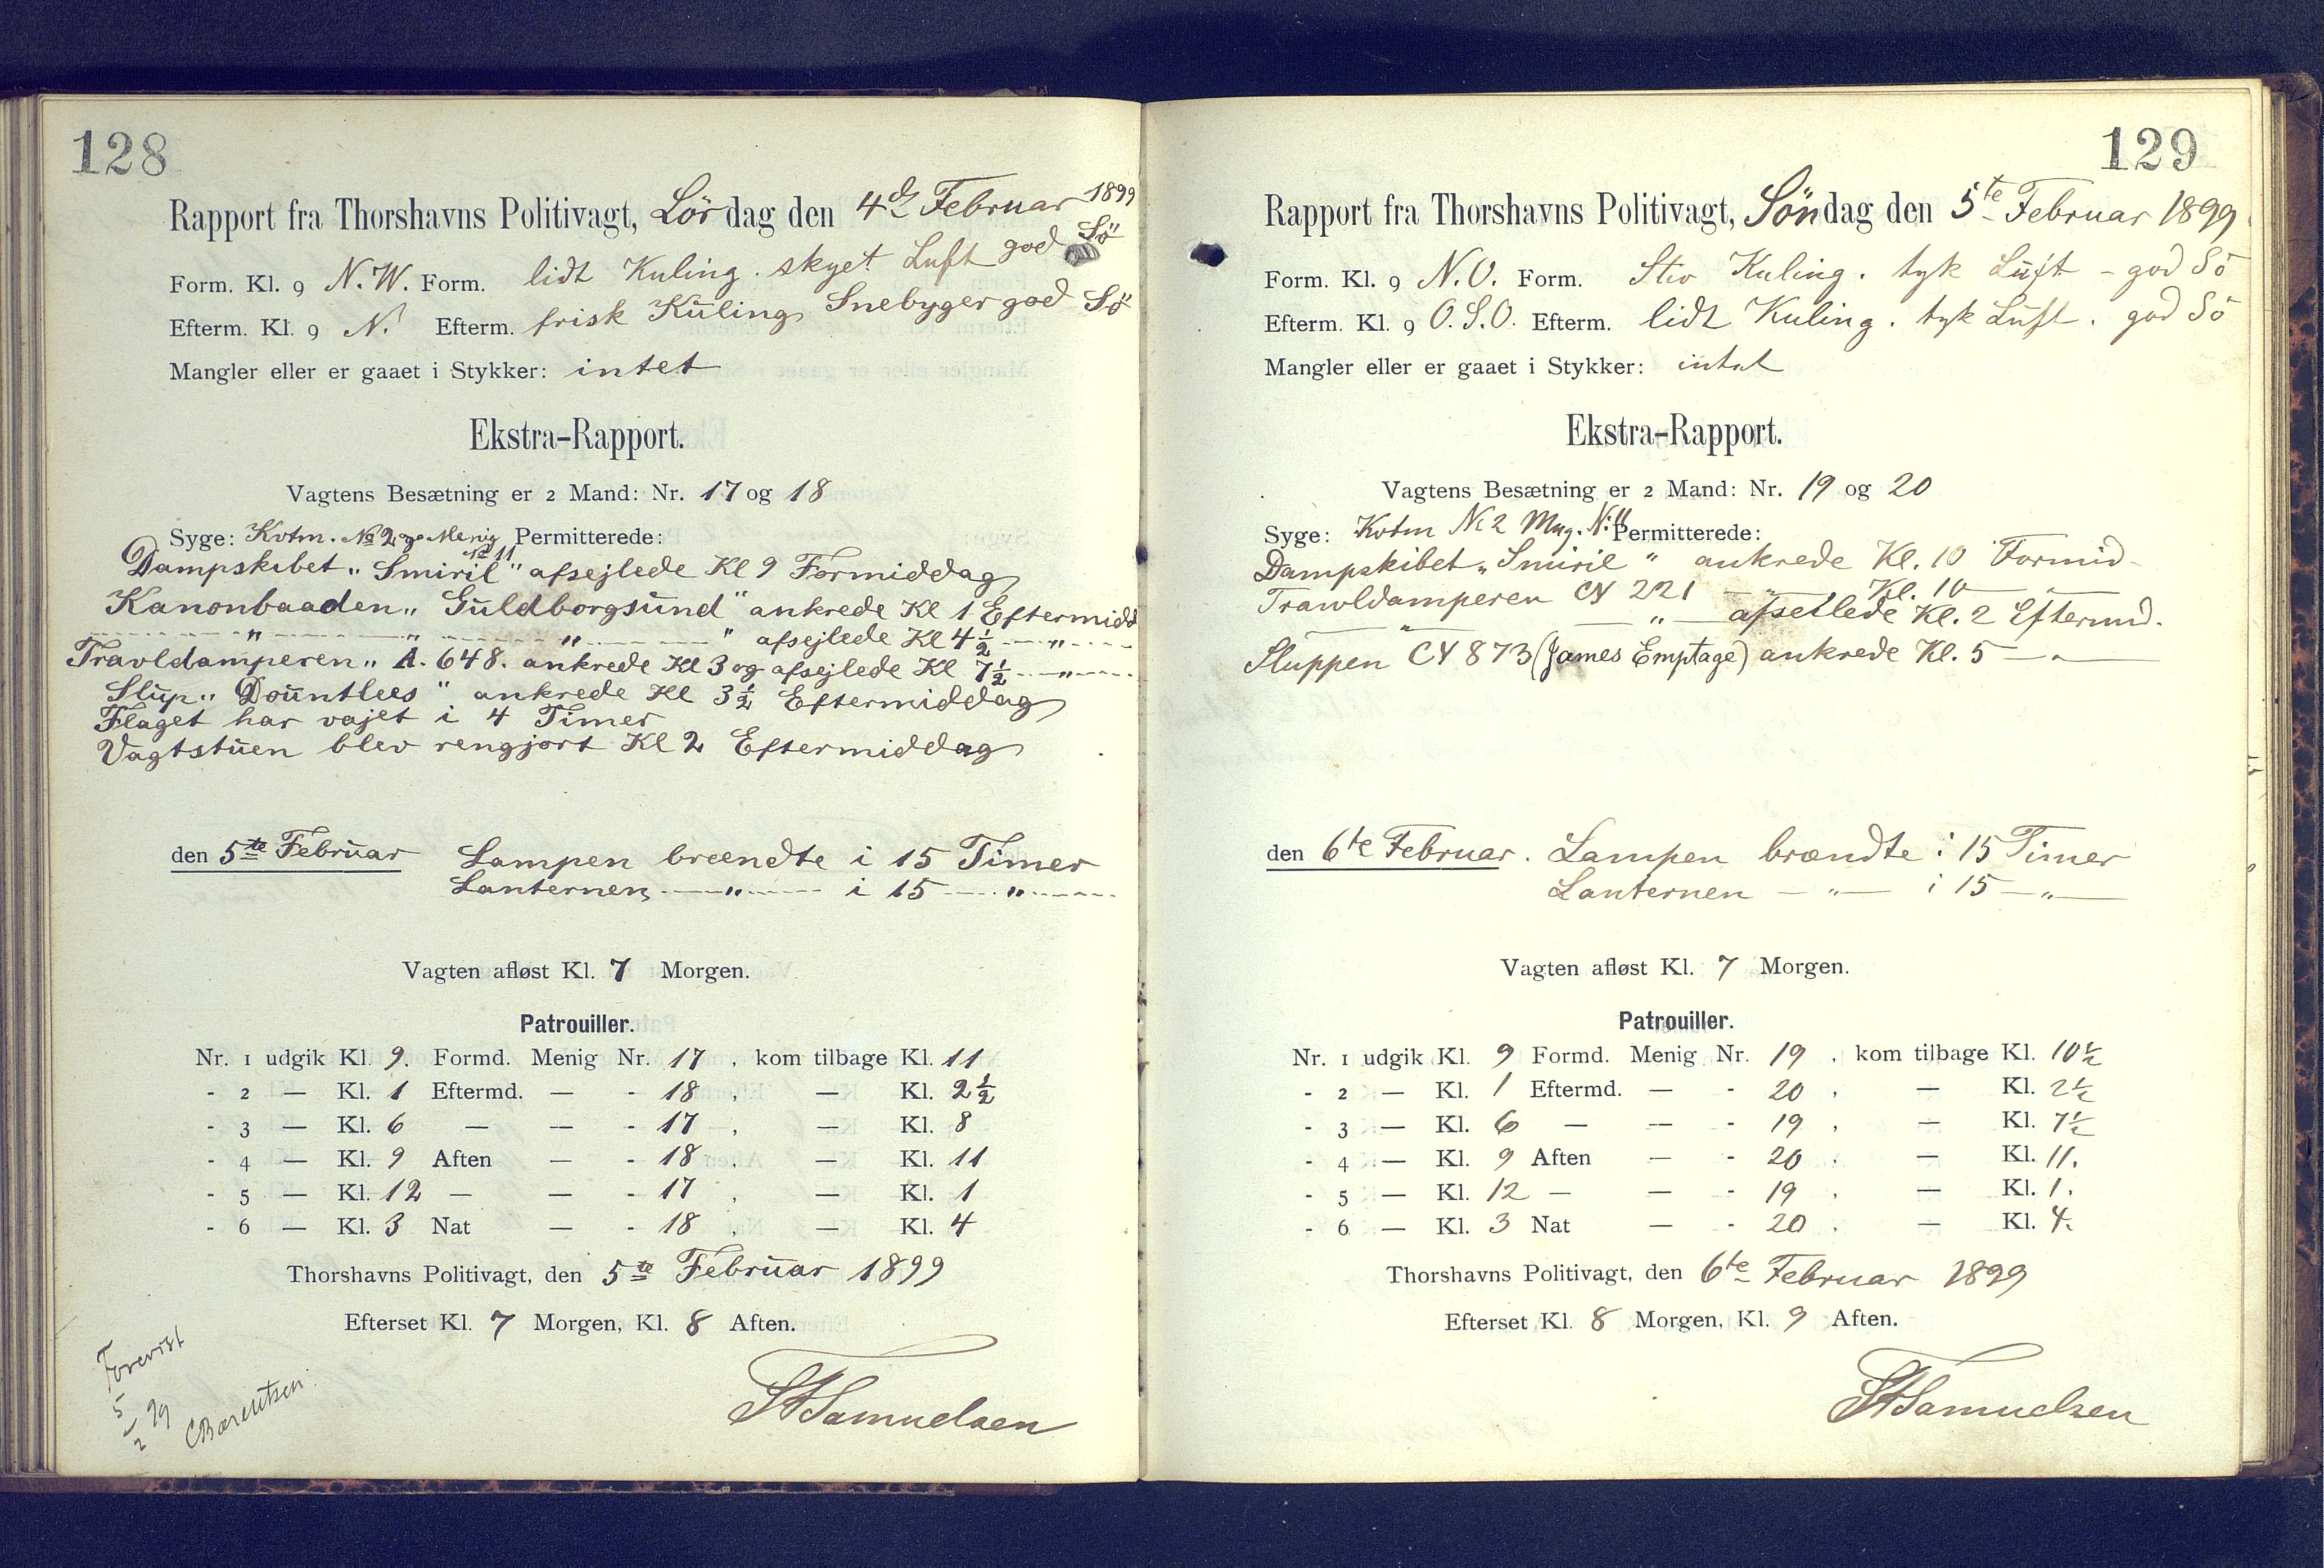 128
Rapport fra Thorshavns Politivagt, Lördag den 4de Februar 1899
Form. Kl. 9 N.W. Form. lidt Kuling. skyet Luft god Sö
Efterm. Kl. 9 N. Efterm. frisk Kuling, Snebyger god Sö
Mangler eller er gaaet i Stykker: intet
Ekstra-Rapport.
Vagtens Besætning er 2 Mand: Nr. 17 og 18
Syge: Kvtm. No 2 og Menig No 11 Permitterede:
Dampskibet „Smiril" afsejlede Kl 9 Formiddag
Kanonbaaden „Guldborgsund" ankrede Kl 1 Eftermidd
— " — " — " — " afsejlede Kl 4½ — " —
Travldamperen „A. 648. ankrede Kl 3 og afsejlede Kl 7½ — " —
Slup „Dountlees" ankrede Kl 3½ Eftermiddag
Flaget har vajet i 4 Timer
Vagtstuen blev rengjort Kl 2 Eftermiddag
den 5te Februar Lampen brændte i 15 Timer
Lanternen — " — i 15 — " —
Vagten afløst Kl. 7 Morgen.
Patrouiller.
Nr. 1 udgik Kl. 9. Formd. Menig Nr. 17, kom tilbage Kl. 11
- 2 — Kl. 1 Eftermd. — - 18, — Kl. 2½
- 3 — Kl. 6 — — - 17, — Kl. 8
- 4 — Kl. 9 Aften — - 18, — Kl. 11
- 5 — Kl. 12 — — - 17, — Kl. 1
- 6 — Kl. 3 Nat — - 18, — Kl. 4
Thorshavns Politivagt, den 5te Februar 1899
Efterset Kl. 7 Morgen, Kl. 8 Aften.
Forevist
5/2 99
CBærentsen.
Samuelsen
129
Rapport fra Thorshavns Politivagt, Söndag den 5te Februar 1899
Form. Kl. 9 N.O. Form. Stiv Kuling. tyk Luft - god Sö
Efterm. Kl. 9 O.S.O. Efterm. lidt Kuling. tyk Luft. god Sö
Mangler eller er gaaet i Stykker: intet
Ekstra-Rapport.
Vagtens Besætning er 2 Mand: Nr. 19 og 20
Syge: Kvtm No 2 Mng. N: 11 Permitterede:
Dampskibet „Smiril" ankrede Kl. 10 Formid-
Trawldamperen CY 221 — " — Kl. 10 —
— " — — " — afseilede Kl. 2 Eftermd.
Sluppen CY 873 (James Emptage) ankrede Kl. 5 — " —
den 6te Februar. Lampen brændte i 15 Timer
Lanternen — " — i 15 — " —
Vagten afløst Kl. 7 Morgen.
Patrouiller.
Nr. 1 udgik Kl. 9 Formd. Menig Nr. 19, kom tilbage Kl. 10½
- 2 — Kl. 1 Eftermd. — - 20, — Kl. 2½
- 3 — Kl. 6 — — - 19, — Kl. 7½
- 4 — Kl. 9 Aften — - 20, — Kl. 11.
- 5 — Kl. 12 — — - 19, — Kl. 1.
- 6 — Kl. 3 Nat — - 20, — Kl. 4.
Thorshavns Politivagt, den 6te Februar 1899
Efterset Kl. 8 Morgen, Kl. 9 Aften.
Samuelsen